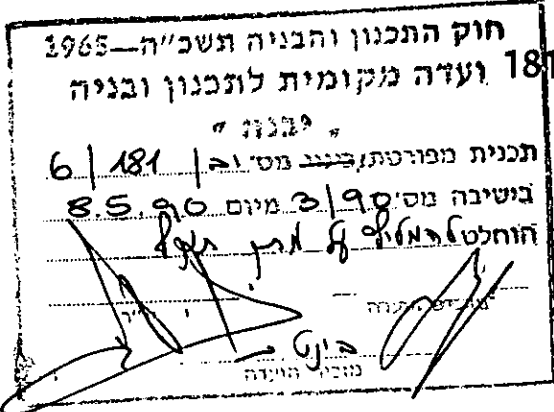 חוק התכנון והבניה תשכ"ה—1965
181
ועדה מקומית לתכנון ובניה
"יבנה"
תכנית מפורטת מס' יב/ 181 / 6
בישיבה מס' 3/90 מיום 8.5.90
הוחלט להמליץ על מתן תוקף
יו"ר